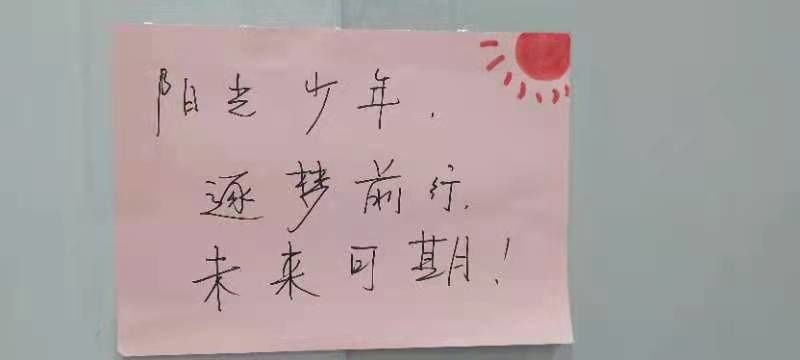 阳光少年.
逐梦前行.
未来可期!